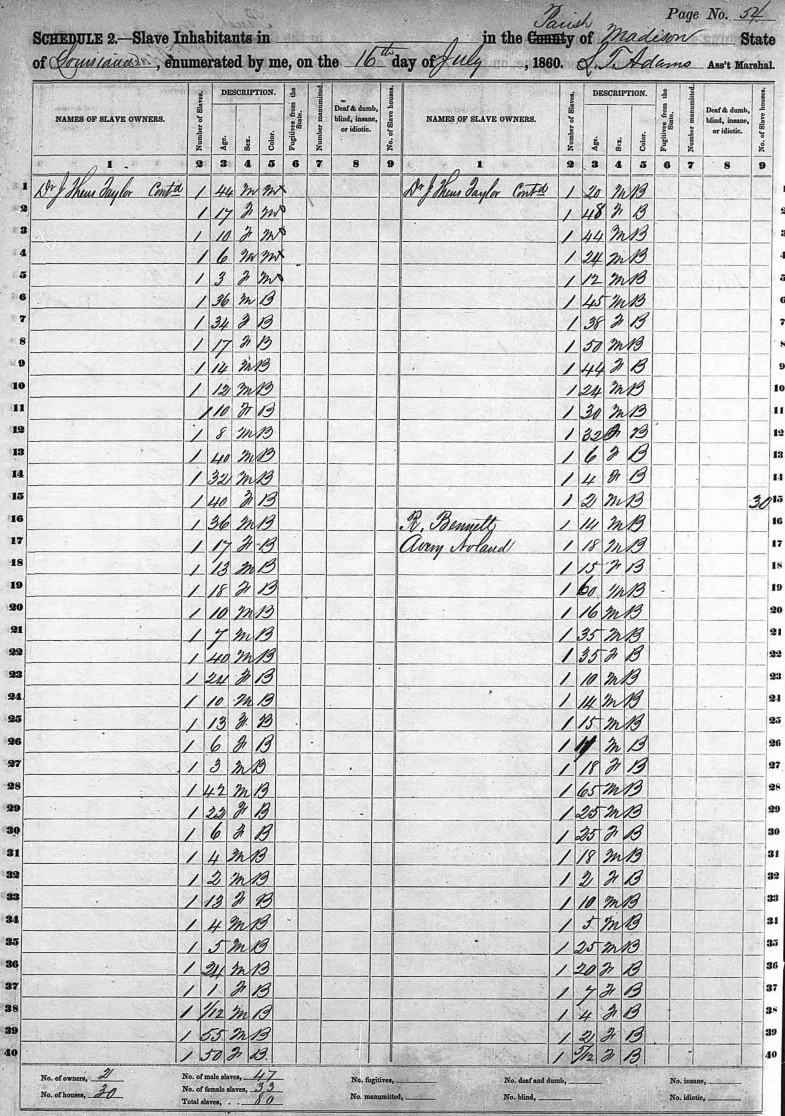 Page No. 54
SCHEDULE 2.—Slave Inhabitants in in the County Parish of Madison State
of Louisiana, enumerated by me, on the 16th day of July, 1860. L. T. Adams Ass't Marshal.
NAMES OF SLAVE OWNERS. Number of Slaves. DESCRIPTION. Age. Sex. Color. Fugitives from the State. Number manumitted. Deaf & dumb, blind, insane, or idiotic. No. of Slave houses. NAMES OF SLAVE OWNERS. Number of Slaves. DESCRIPTION. Age. Sex. Color. Fugitives from the State. Number manumitted. Deaf & dumb, blind, insane, or idiotic. No. of Slave houses.
1 2 3 4 5 6 7 8 9 1 2 3 4 5 6 7 8 9
1 Dr J Theus Taylor Contd 1 44 M Mx Dr J Theus Taylor Contd 1 20 M B 1
2 1 17 F M 1 48 F B 2
3 1 10 F M 1 44 M B 3
4 1 6 M Mx 1 24 M B 4
5 1 3 F Mx 1 12 M B 5
6 1 36 M B 1 45 M B 6
7 1 34 F B 1 38 F B 7
8 1 17 F B 1 50 M B 8
9 1 14 M B 1 44 F B 9
10 1 12 M B 1 24 M B 10
11 1 10 F B 1 30 M B 11
12 1 8 M B 1 32 F B 12
13 1 40 M B 1 6 F B 13
14 1 32 M B 1 4 F B 14
15 1 40 F B 1 2 M B 30 15
16 1 36 M B R. Bennett 1 14 M B 16
17 1 17 F B Avery Noland 1 18 M B 17
18 1 13 M B 1 15 F B 18
19 1 18 F B 1 60 M B 19
20 1 10 M B 1 16 M B 20
21 1 7 M B 1 35 M B 21
22 1 40 M B 1 35 F B 22
23 1 24 F B 1 10 M B 23
24 1 10 M B 1 14 M B 24
25 1 13 F B 1 15 M B 25
26 1 6 F B 1 M B 26
27 1 3 M B 1 18 F B 27
28 1 42 M B 1 65 M B 28
29 1 22 F B 1 25 M B 29
30 1 6 F B 1 25 F B 30
31 1 4 M B 1 18 M B 31
32 1 2 M B 1 2 F B 32
33 1 13 F B 1 10 M B 33
34 1 4 M B 1 5 M B 34
35 1 5 M B 1 25 M B 35
36 1 24 M B 1 20 F B 36
37 1 1 F B 1 7 F B 37
38 1 1/12 M B 1 4 F B 38
39 1 55 M B 1 2 F B 39
40 1 50 F B 1 5/12 F B 40
No. of owners, 2 No. of male slaves, 47 No. fugitives, No. of deaf and dumb, No. of insane,
No. of houses, 30 No. of female slaves, 33 No. manumitted, No. of blind, No. of idiotic,
Total slaves, 80